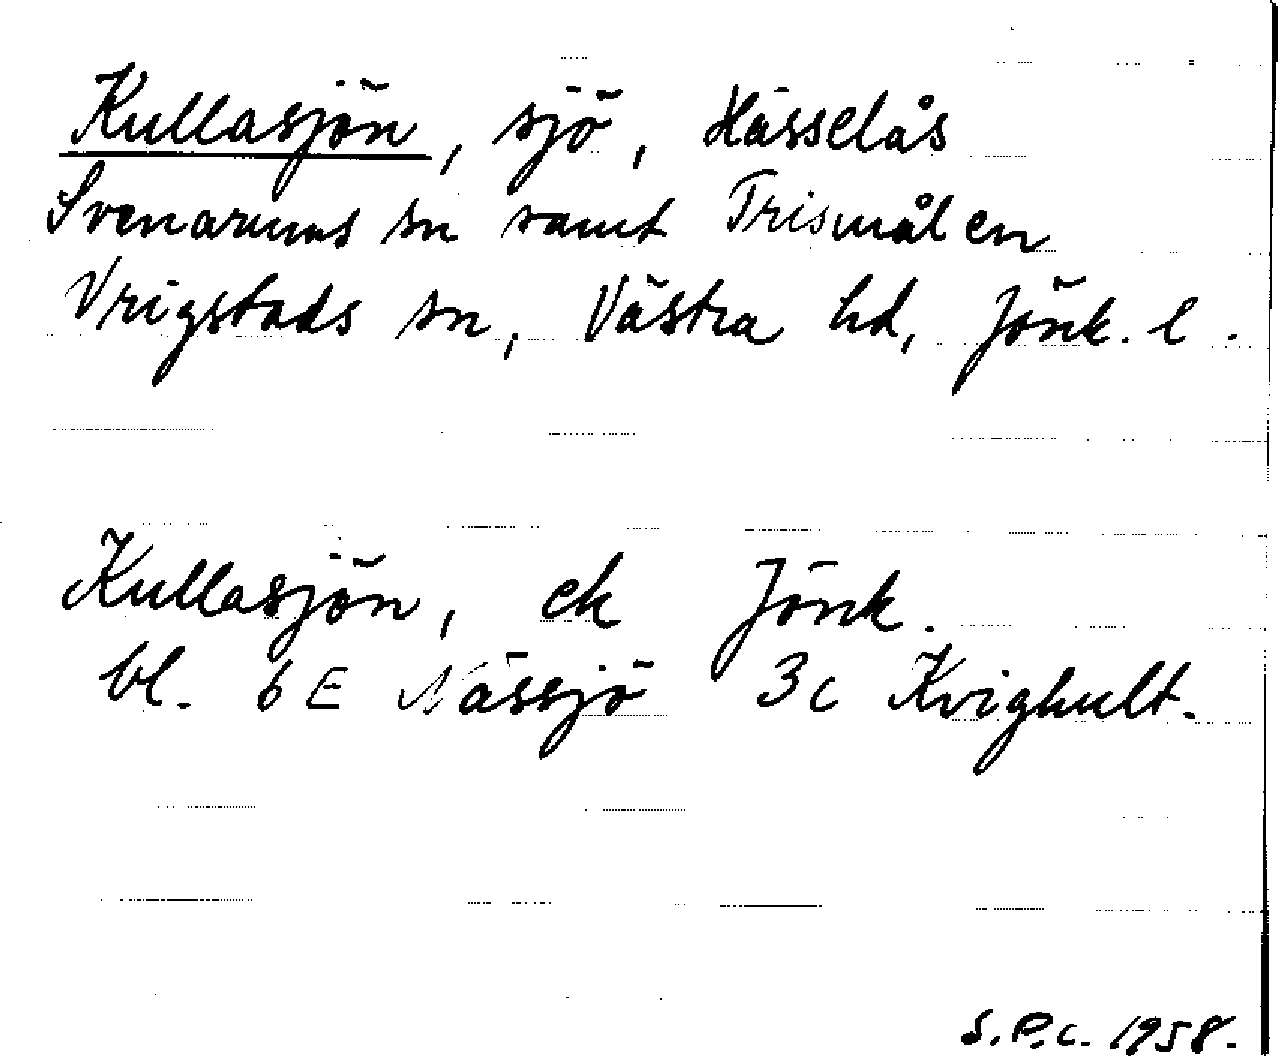 Kullasjön, sjö, Hässelås
Svenarums sn samt Trismålen
Vrigstads sn, Västra hd, Jönk. l.
Kullasjön, ek Jönk.
bl. 6E Nässjö 3c Kvighult.
S.P.C. 1958.